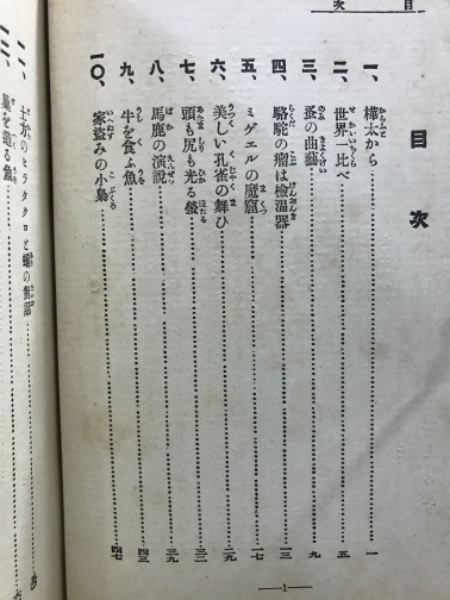 目次
目次
一、樺太から……一
二、世界一比べ……五
三、蚤の曲藝……九
四、駱駝の瘤は檢溫器……一三
五、ミゲエルの魔窟……一七
六、美しい孔雀の舞ひ……二九
七、頭も尻も光る螢……三二
八、馬鹿の演說……三九
九、牛を食ふ魚……四三
一〇、家盜みの小梟……四七
—1—
一一、土方のヒラタクロと蟻の
一二、巢を造る魚